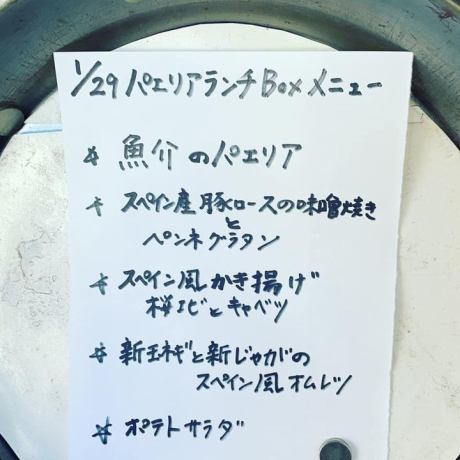 1/29 パエリアランチBoxメニュー
☆ 魚介のパエリア
☆ スペイン産豚ロースの味噌焼き
と
ペンネグラタン
☆ スペイン風かき揚げ
桜エビとキャベツ
☆ 新玉ネギと新じゃがの
スペイン風オムレツ
☆ ポテトサラダ